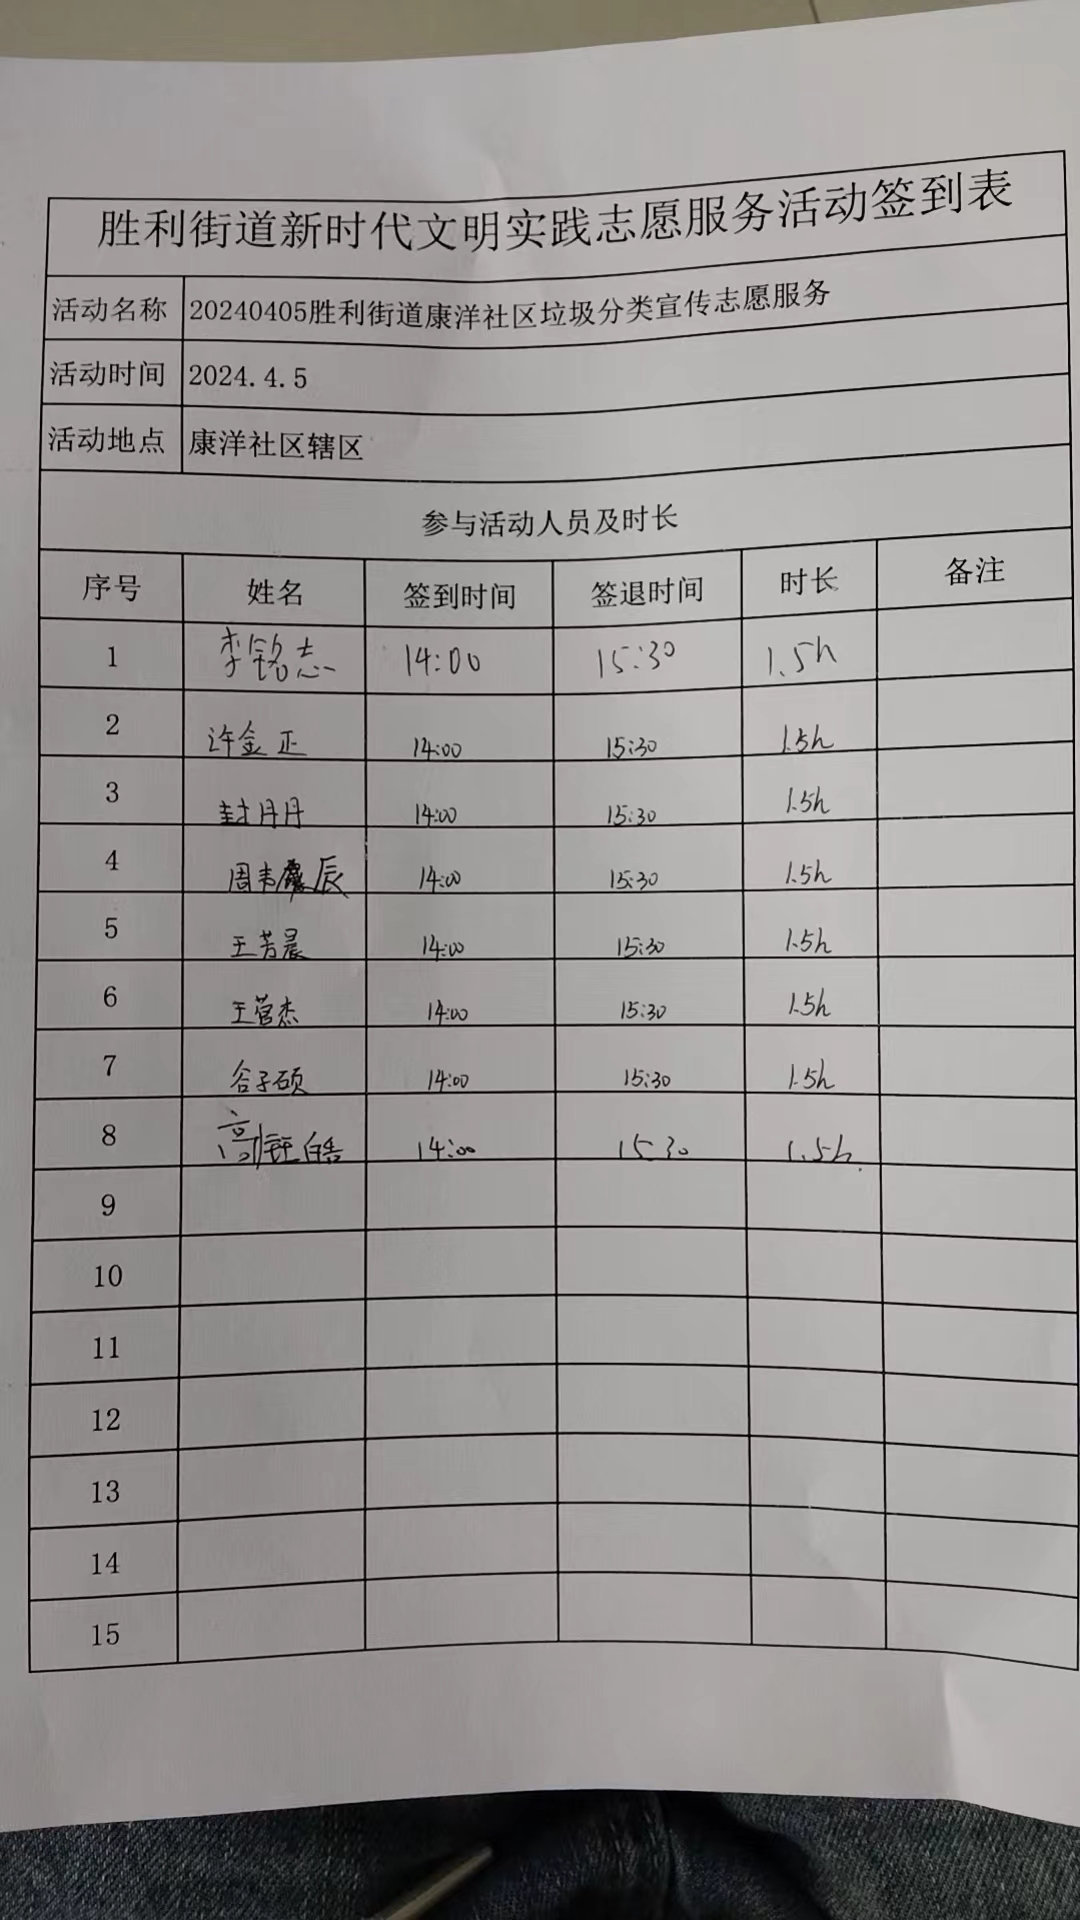 胜利街道新时代文明实践志愿服务活动签到表
活动名称 20240405胜利街道康洋社区垃圾分类宣传志愿服务
活动时间 2024.4.5
活动地点 康洋社区辖区
参与活动人员及时长
序号 姓名 签到时间 签退时间 时长 备注
1 李铭志 14:00 15:30 1.5h
2 许金正 14:00 15:30 1.5h
3 封丹丹 14:00 15:30 1.5h
4 周韦辰 14:00 15:30 1.5h
5 王芳晨 14:00 15:30 1.5h
6 王营杰 14:00 15:30 1.5h
7 谷子硕 14:00 15:30 1.5h
8 高钰皓 14:00 15:30 1.5h
9
10
11
12
13
14
15